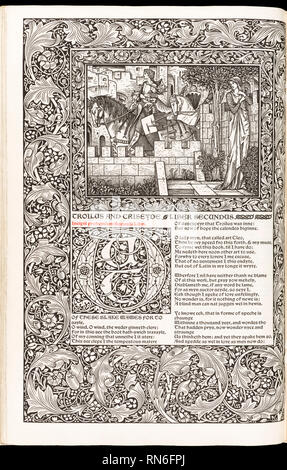 TROILUS AND CRISEYDE. LIBER SECUNDUS.
OF THESE BLAKE WAWES FOR TO
sayle,
O wind, O wind, the weder ginneth clere;
For in this see the boot hath swich travayle,
Of my conning that unnethe I it stere:
This see clepe I the tempestous matere
Of desespeyr that Troilus was inne:
But now of hope the calendes biginne.
O lady myn, that called art Cleo,
Thou be my speed fro this forth, & my muse,
To ryme wel this book, til I have do;
Me nedeth here noon other art to use.
Forwhy to every lovere I me excuse,
That of no sentement I this endyte,
But out of Latin in my tonge it wryte.
Wherfore I nil have neither thank ne blame
Of al this werk, but prey yow mekely,
Disblameth me, if any word be lame,
For as myn auctor seyde, so sey I.
Eek though I speke of love unfelingly,
No wonder is, for it nothing of newe is;
A blind man can nat juggen wel in hewis.
Ye knowe eek, that in forme of speche is
chaunge
Withinne a thousand yeer, and wordes tho
That hadden prys, now wonder nyce and
straunge
Us thinketh hem; and yet they spake hem so,
And spedde as wel in love as men now do;
alamy
RN6FPJ